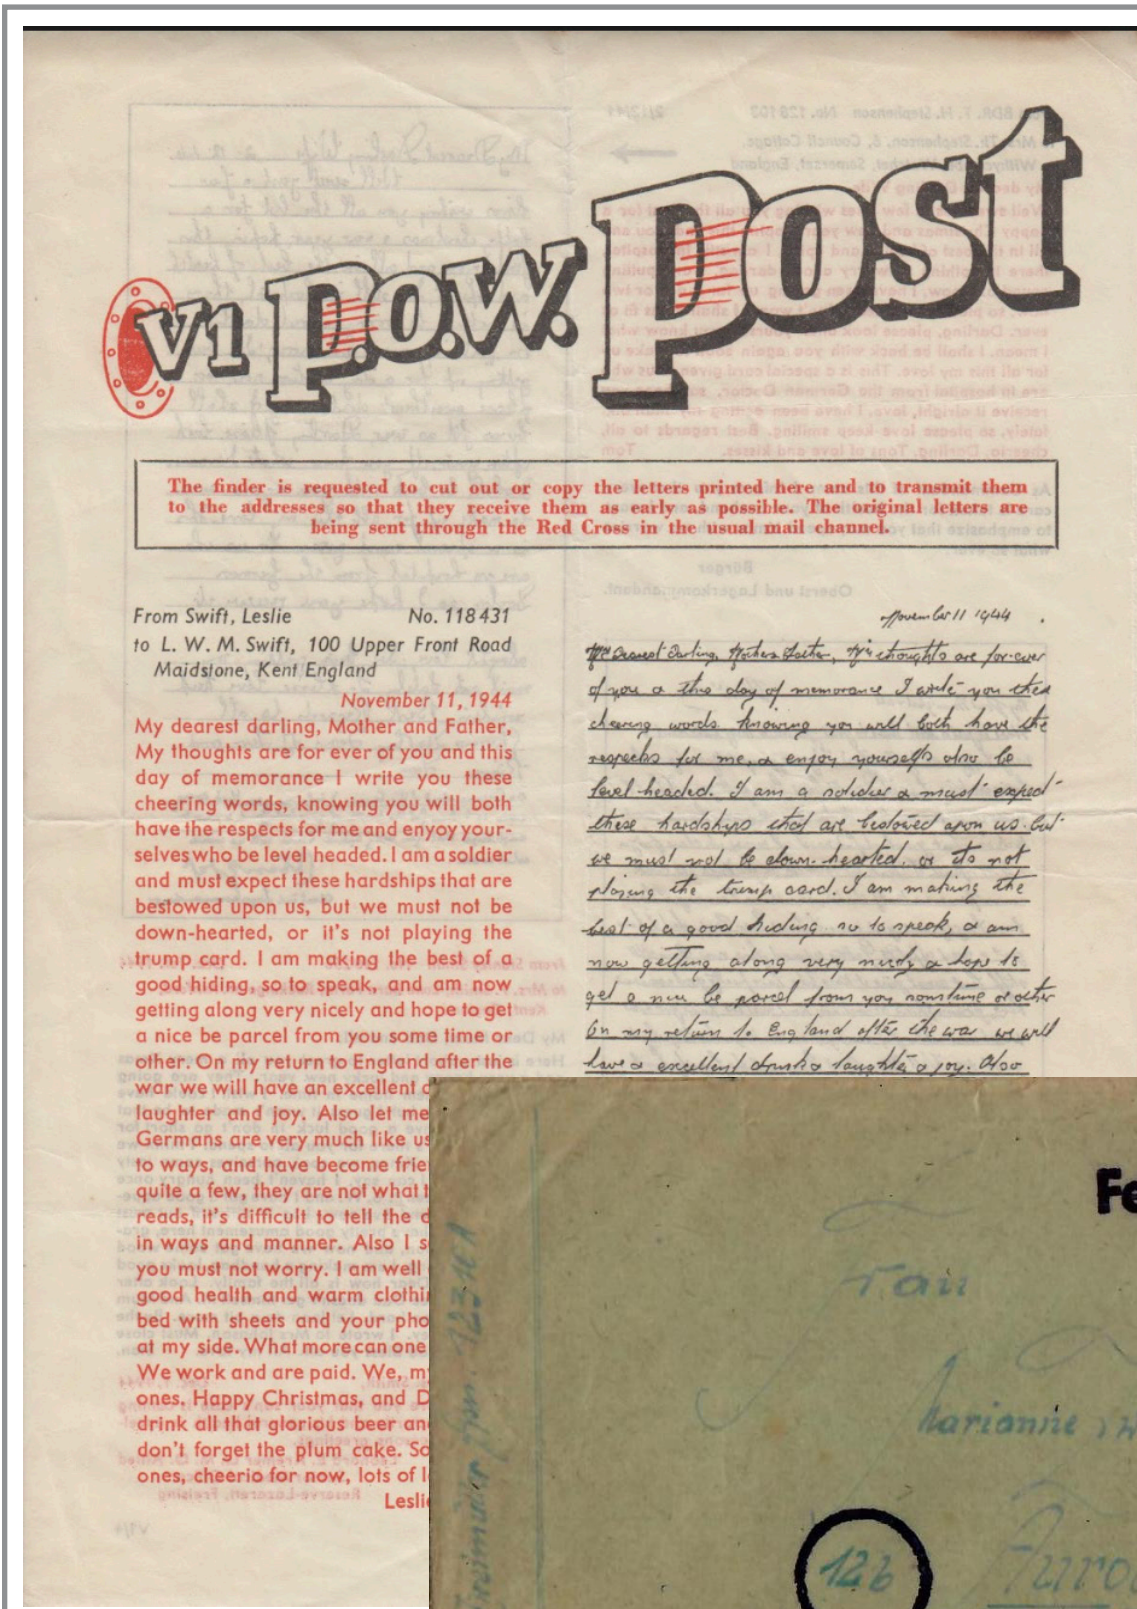 V1 P.O.W. Post
The finder is requested to cut out or copy the letters printed here and to transmit them
to the addresses so that they receive them as early as possible. The original letters are
being sent through the Red Cross in the usual mail channel.
From Swift, Leslie No. 118431
to L. W. M. Swift, 100 Upper Front Road
Maidstone, Kent England
November 11, 1944
My dearest darling, Mother and Father,
My thoughts are for ever of you and this
day of memorance I write you these
cheering words, knowing you will both
have the respects for me and enyoy your-
selves who be level headed. I am a soldier
and must expect these hardships that are
bestowed upon us, but we must not be
down-hearted, or it's not playing the
trump card. I am making the best of a
good hiding, so to speak, and am now
getting along very nicely and hope to get
a nice be parcel from you some time or
other. On my return to England after the
war we will have an excellent d
laughter and joy. Also let me
Germans are very much like us
to ways, and have become frie
quite a few, they are not what t
reads, it's difficult to tell the d
in ways and manner. Also I s
you must not worry. I am well
good health and warm clothi
bed with sheets and your pho
at my side. What more can one
We work and are paid. We, my
ones. Happy Christmas, and D
drink all that glorious beer and
don't forget the plum cake. So
ones, cheerio for now, lots of l
Leslie
November 11 1944
My dearest Darling, Mother & Father, My thoughts are for-ever
of you & this day of memorance I write you these
cheering words knowing you will both have the
respects for me, & enjoy yourselfs also be
level headed. I am a soldier & must expect
these hardships that are bestowed upon us but
we must not be down-hearted. or its not
playing the trump card. I am making the
best of a good hiding so to speak, & am
now getting along very nicely & hope to
get a nice be parcel from you sometime or other
On my return to England after the war we will
have a excellent drink & laughter & joy. Also
Fe
Frau
Marianne
12b